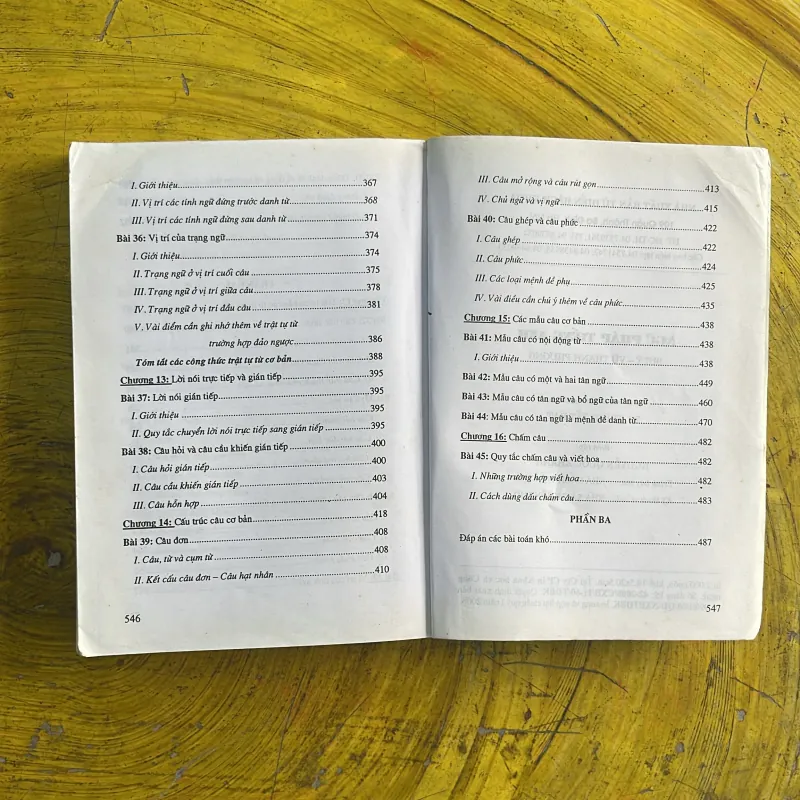 I. Giới thiệu....367
II. Vị trí các tính ngữ đứng trước danh từ....368
III. Vị trí các tính ngữ đứng sau danh từ....371
Bài 36: Vị trí của trạng ngữ....374
I. Giới thiệu....374
II. Trạng ngữ ở vị trí cuối câu....375
III. Trạng ngữ ở vị trí giữa câu....378
IV. Trạng ngữ ở vị trí đầu câu....381
V. Vài điểm cần ghi nhớ thêm về trật tự từ
trường hợp đảo ngược....386
Tóm tắt các công thức trật tự từ cơ bản....388
Chương 13: Lời nói trực tiếp và gián tiếp....395
Bài 37: Lời nói gián tiếp....395
I. Giới thiệu....395
II. Quy tắc chuyển lời nói trực tiếp sang gián tiếp....395
Bài 38: Câu hỏi và câu cầu khiến gián tiếp....400
I. Câu hỏi gián tiếp....400
II. Câu cầu khiến gián tiếp....403
III. Câu hỗn hợp....404
Chương 14: Cấu trúc câu cơ bản....418
Bài 39: Câu đơn....408
I. Câu, từ và cụm từ....408
II. Kết cấu câu đơn – Câu hạt nhân....410
546
III. Câu mở rộng và câu rút gọn....413
IV. Chủ ngữ và vị ngữ....415
Bài 40: Câu ghép và câu phức....422
I. Câu ghép....422
II. Câu phức....424
III. Các loại mệnh đề phụ....425
IV. Vài điều cần chú ý thêm về câu phức....435
Chương 15: Các mẫu câu cơ bản....438
Bài 41: Mẫu câu có nội động từ....438
I. Giới thiệu....438
Bài 42: Mẫu câu có một và hai tân ngữ....449
Bài 43: Mẫu câu có tân ngữ và bổ ngữ của tân ngữ....460
Bài 44: Mẫu câu có tân ngữ là mệnh đề danh từ....470
Chương 16: Chấm câu....482
Bài 45: Quy tắc chấm câu và viết hoa....482
I. Những trường hợp viết hoa....482
II. Cách dùng dấu chấm câu....483
PHẦN BA
Đáp án các bài toán khó....487
547